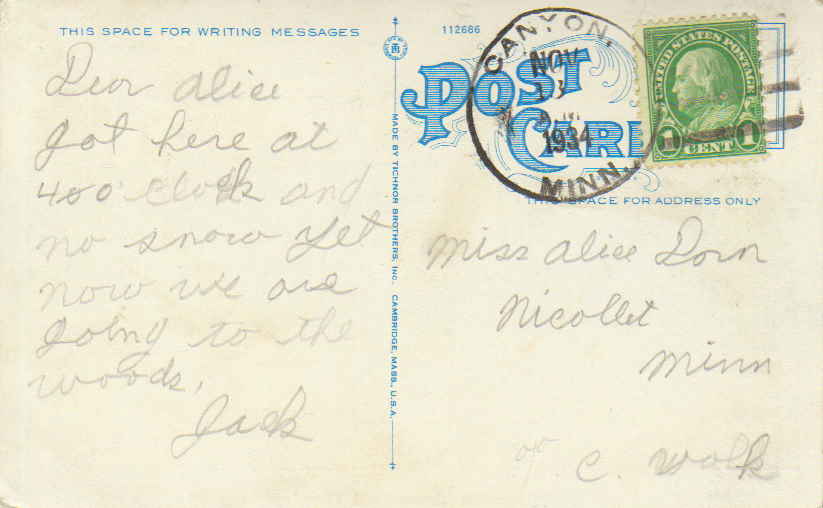 THIS SPACE FOR WRITING MESSAGES
Dear Alice
Got here at
400 clock and
no snow yet
now we are
going to the
woods,
Jack
MADE BY TICHNOR BROTHERS, INC. CAMBRIDGE, MASS., U.S.A.
112686
POST
CARD
CANYON,
NOV
1934
MINN.
UNITED STATES POSTAGE
1 CENT 1
THIS SPACE FOR ADDRESS ONLY
Miss Alice Dorn
Nicollet
Minn
C. Wolk